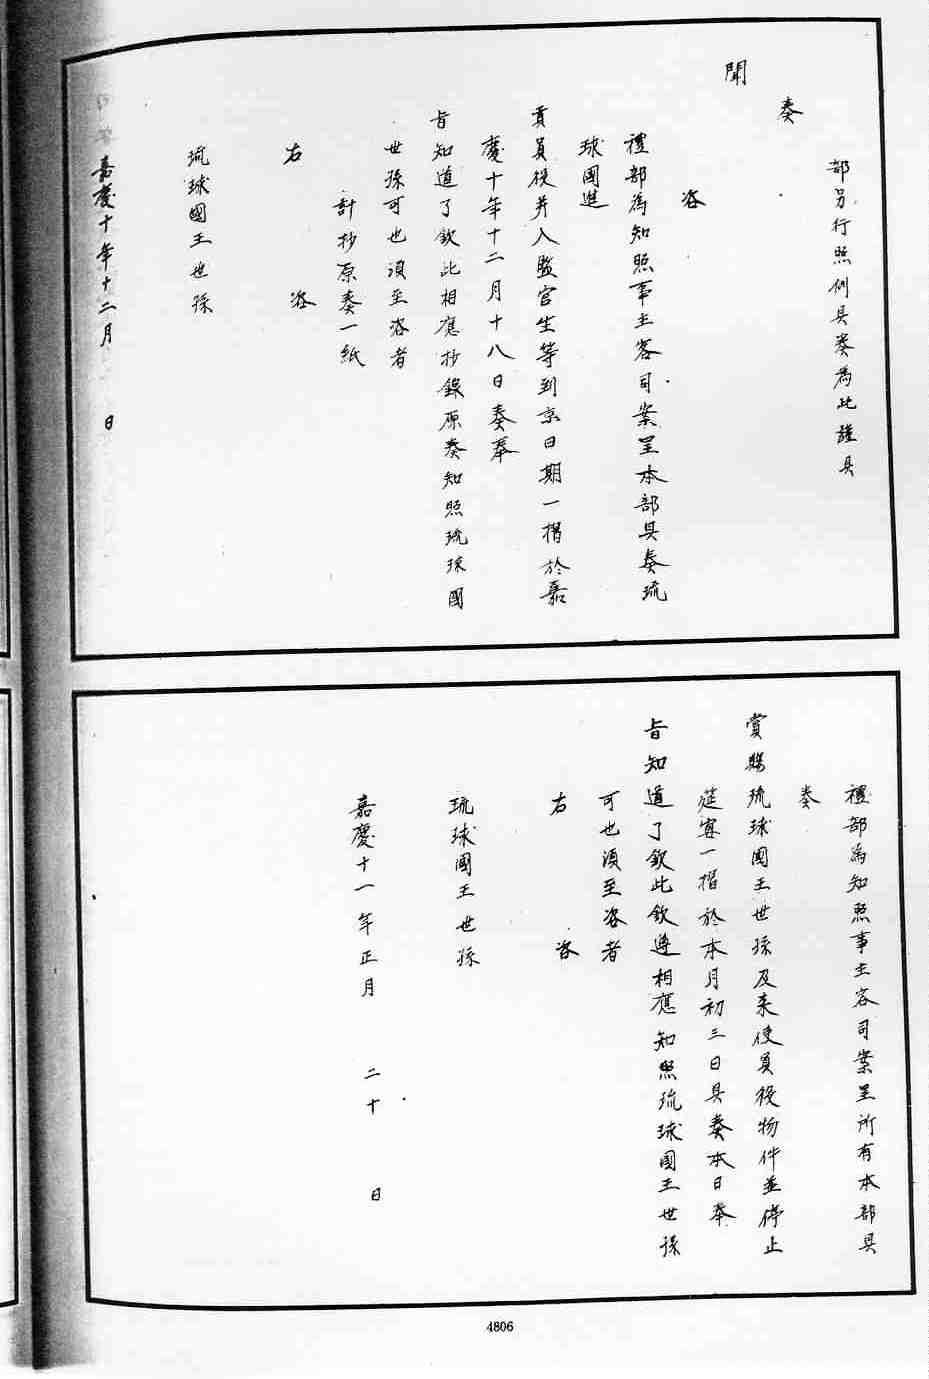 部另行照例具奏為此謹具
奏
聞
咨
禮部為知照事主客司案呈本部具奏琉
球國進
貢員役并入監官生等到京日期一摺於嘉
慶十年十二月十八日奏奉
旨知道了欽此相應抄錄原奏知照琉球國
世孫可也須至咨者
計抄原奏一紙
右咨
琉球國王世孫
嘉慶十年十二月日
禮部為知照事主客司案呈所有本部具
奏
賞賜琉球國王世孫及來使員役物件並停止
筵宴一摺於本月初三日具奏本日奉
旨知道了欽此欽遵相應知照琉球國王世孫
可也須至咨者
右咨
琉球國王世孫
嘉慶十一年正月二十日
4806